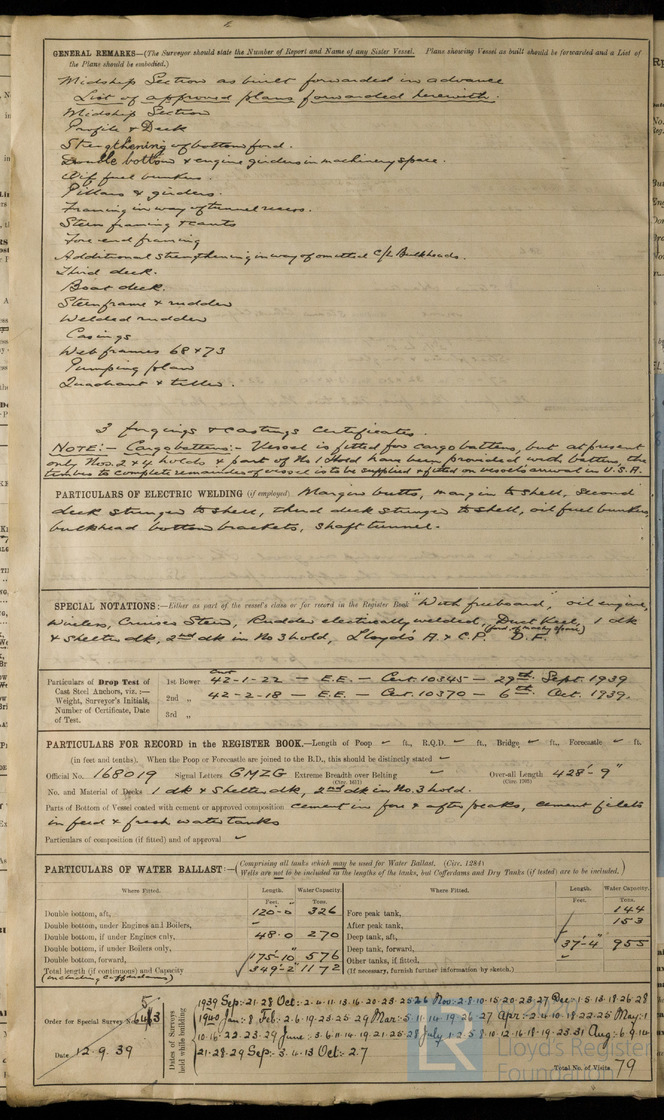 GENERAL REMARKS—(The Surveyor should state the Number of Report and Name of any Sister Vessel. Plans showing Vessel as built should be forwarded and a List of
the Plans should be embodied.)
Midship Section as built forwarded in advance
List of approved plans forwarded herewith.
Midship Section
Profile & Deck
Strengthening of bottom ford.
Double bottom & engine girders in machinery space.
Oil fuel bunkers.
Pillars & girders.
Framing in way of tunnel recess.
Stern framing & cants
Fore end framing
Additional strengthening in way of omitted C/L Bulkheads.
Third deck.
Boat deck.
Sternframe & rudder
Welded rudder
Casings
Web frames 68 & 73
Pumping plan
Quadrant & tiller.
3 forgings & castings certificates.
NOTE:- Cargo battens:- Vessel is fitted for cargo battens, but at present
only Nos. 2 & 4 holds & part of No 1 Hold have been provided with battens, the
timber to complete remainder of vessel is to be supplied & fitted on vessel's arrival in U.S.A.
PARTICULARS OF ELECTRIC WELDING (if employed) Margin butts, margin to shell, second
deck stringer to shell, third deck stringer to shell, oil fuel bunkers,
bulkhead bottom brackets, shaft tunnel.
SPECIAL NOTATIONS:—Either as part of the vessel's class or for record in the Register Book "With freeboard", oil engine,
Wireless, Cruiser Stern, Rudder electrically welded, Duct Keel, 1 dk
& Shelter dk, 2nd dk in No 3 hold, Lloyd's A. & C.P. D.F.
Particulars of Drop Test of
Cast Steel Anchors, viz.:—
Weight, Surveyor's Initials,
Number of Certificate, Date
of Test.
1st Bower 42-1-22 — E.E. — Cert. 10345 — 29th Sept. 1939
2nd „ 42-2-18 — E.E. — Cert. 10370 — 6th Oct. 1939.
3rd „
PARTICULARS FOR RECORD in the REGISTER BOOK.—Length of Poop ft., R.Q.D. ft., Bridge ft., Forecastle ft.
(in feet and tenths). When the Poop or Forecastle are joined to the B.D., this should be distinctly stated
Official No. 168019 Signal Letters GMZG Extreme Breadth over Belting (Circ. 1611) Over-all Length 428'-9" (Circ. 1703)
No. and Material of Decks 1 dk & Shelter dk, 2nd dk in No. 3 hold.
Parts of Bottom of Vessel coated with cement or approved composition cement in fore & after peaks, cement fillets
in feed & fresh water tanks
Particulars of composition (if fitted) and of approval
PARTICULARS OF WATER BALLAST:—(Comprising all tanks which may be used for Water Ballast. (Circ. 1284)
Wells are not to be included in the lengths of the tanks, but Cofferdams and Dry Tanks (if tested) are to be included.)
Where Fitted. Length. Water Capacity. Where Fitted. Length. Water Capacity.
Feet. Tons. Feet. Tons.
Double bottom, aft, 120-0 326 Fore peak tank, 144
Double bottom, under Engines and Boilers, After peak tank, 153
Double bottom, if under Engines only, 48-0 270 Deep tank, aft,
Double bottom, if under Boilers only, Deep tank, forward, 37'-4" 955
Double bottom, forward, 175-10 576 Other tanks, if fitted,
Total length (if continuous) and Capacity 349'-2" 1172 (If necessary, furnish further information by sketch.)
(including cofferdams)
Order for Special Survey No.
Date 12.9.39
Dates of Surveys
held while building
1939 Sep:-21-28 Oct:-2-4-11-13-16-20-23-25-26 Nov:-2-8-10-15-20-23-27 Dec:-1-5-13-18-26-28
1940 Jan:-8 Feb:-2-6-19-23-25-29 Mar:-5-11-14-19-26-27 Apr:-2-4-10-18-22-25 May:-1
10-16-22-23-29 June:-3-6-11-14-19-21-25-28 July:-1-2-5-8-10-12-16-18-19-23-31 Aug:-6-9-14
21-28-29 Sep:-3-4-13 Oct:-2-7
Total No. of Visits 79
Lloyd's Register
Foundation